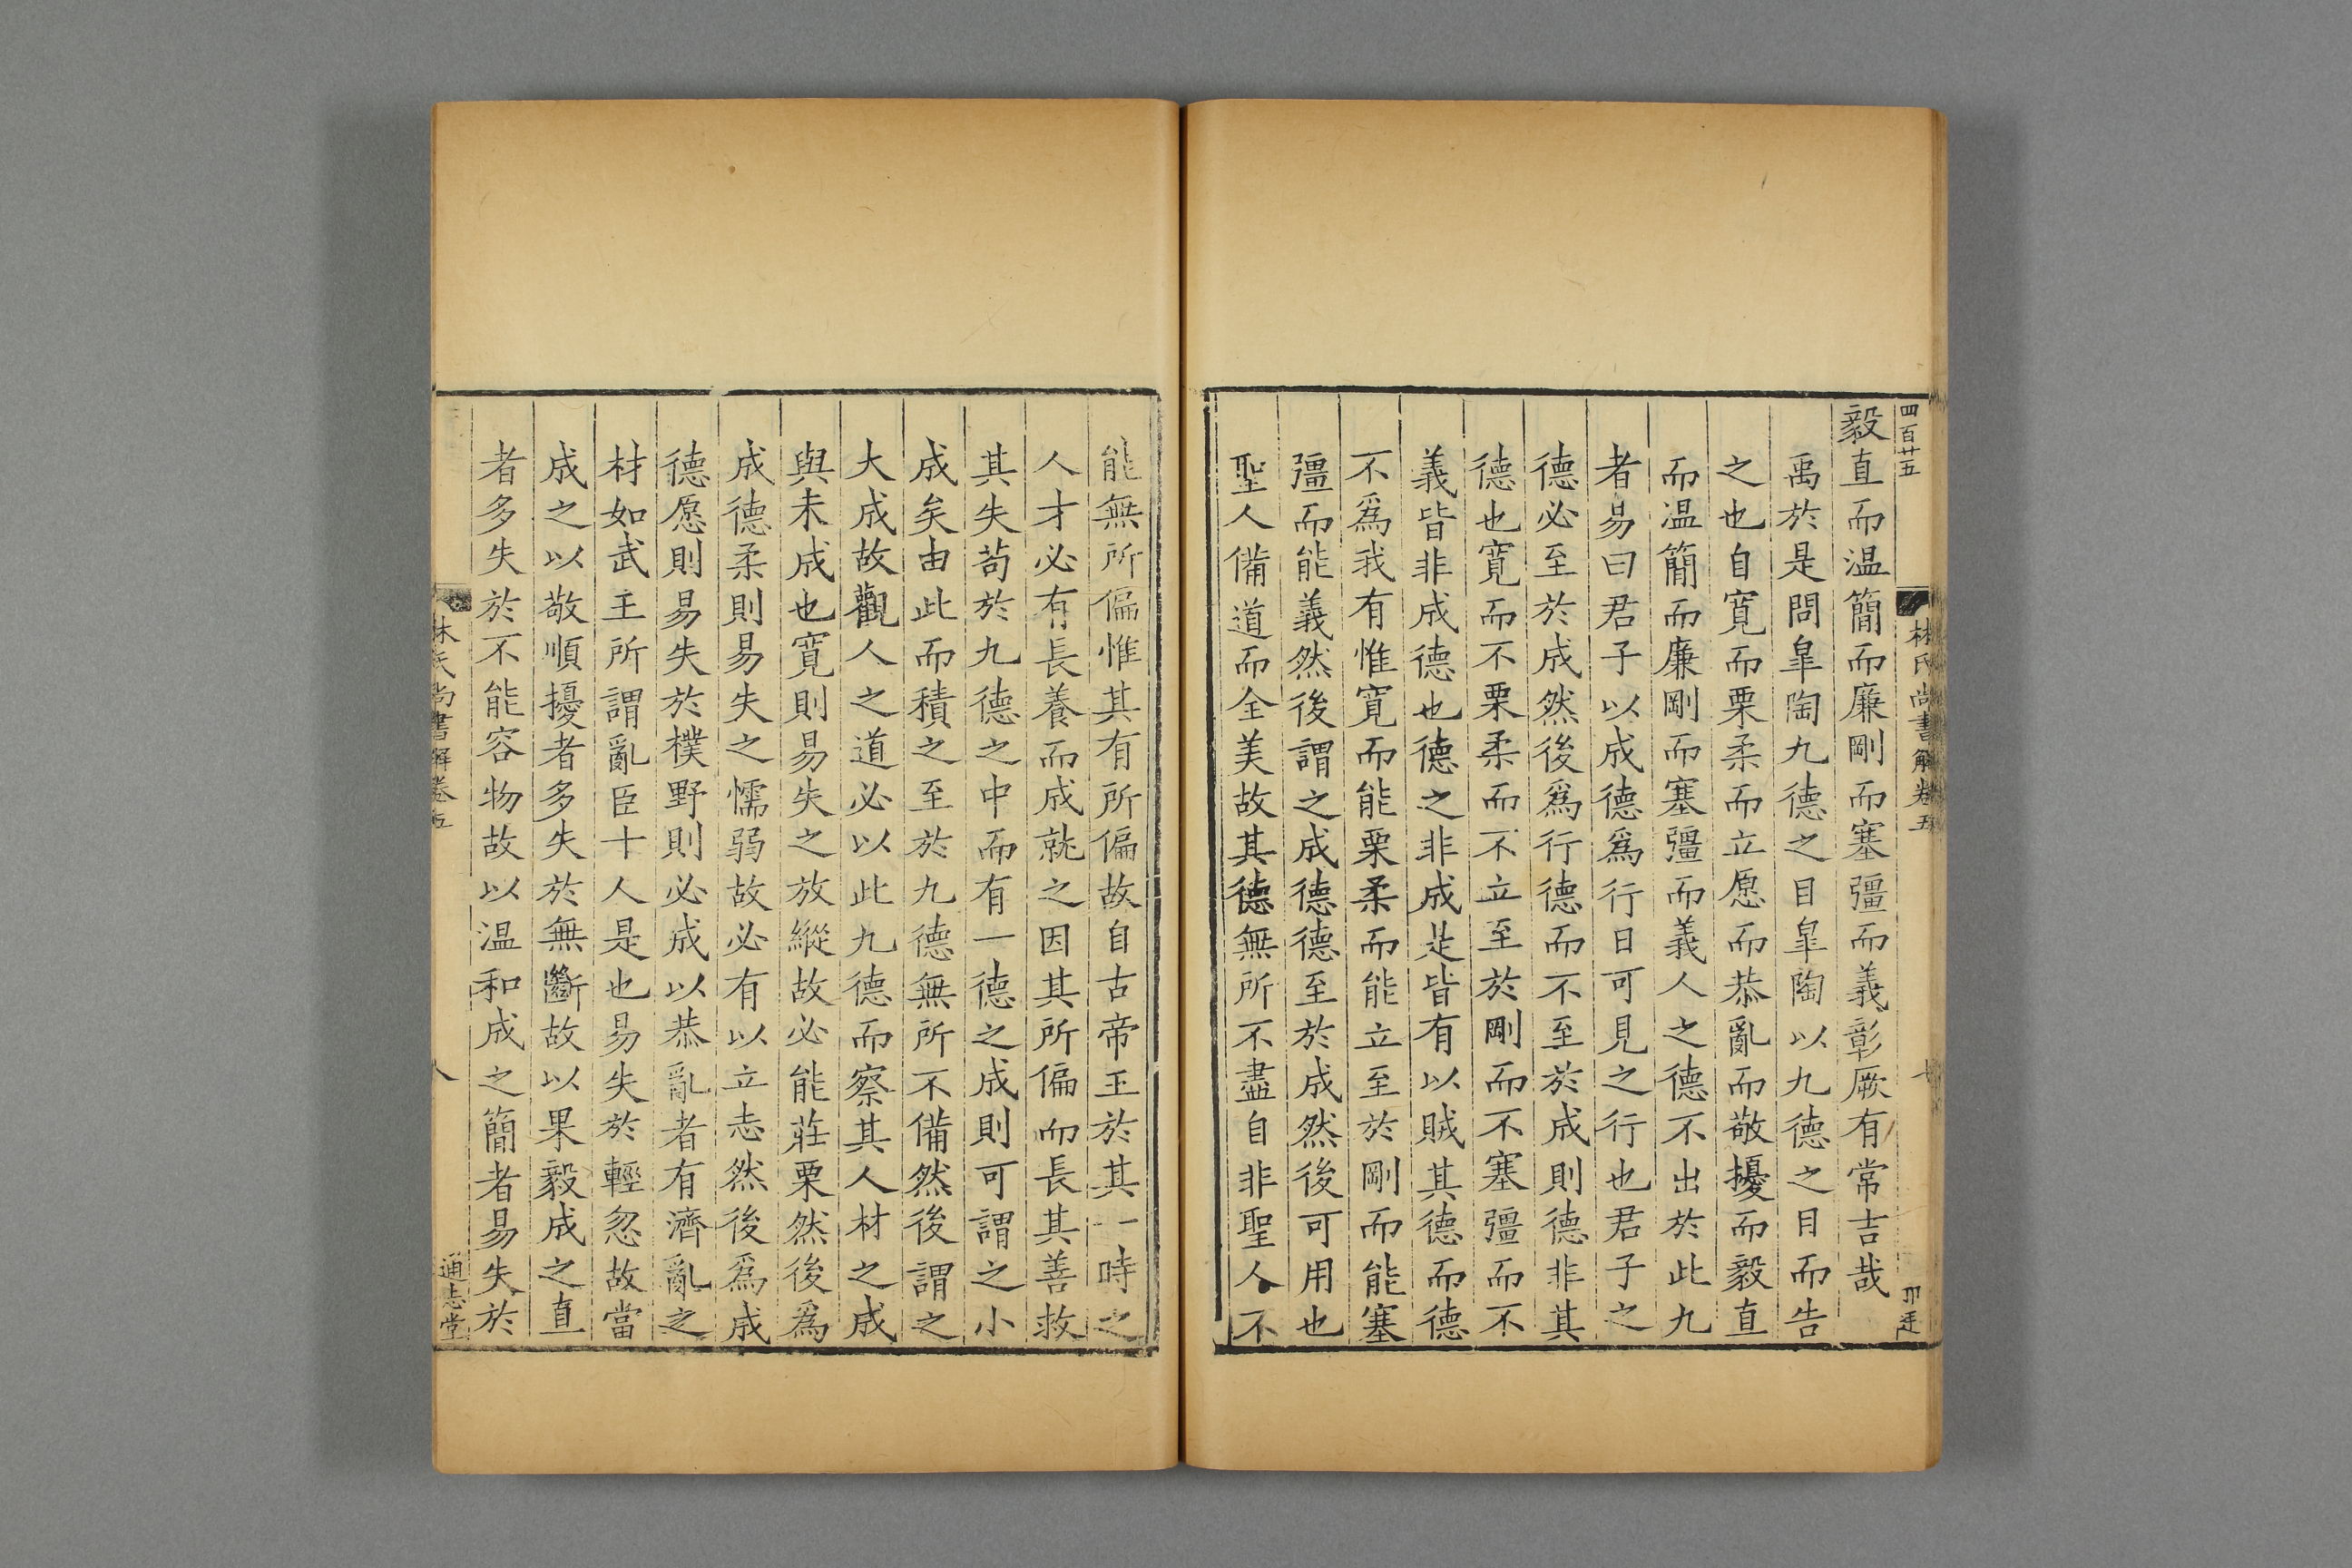 四百廿五
林氏尚書解卷五
毅直而温簡而廉剛而塞彊而義彰厥有常吉哉
禹於是問臯陶九德之目臯陶以九德之目而告
之也自寛而栗柔而立愿而恭亂而敬擾而毅直
而温簡而廉剛而塞彊而義人之德不出於此九
者易曰君子以成德爲行日可見之行也君子之
德必至於成然後爲行德而不至於成則德非其
德也寛而不栗柔而不立至於剛而不塞彊而不
義皆非成德也德之非成是皆有以賊其德而德
不爲我有惟寛而能栗柔而能立至於剛而能塞
彊而能義然後謂之成德德至於成然後可用也
聖人備道而全美故其德無所不盡自非聖人不
能無所偏惟其有所偏故自古帝王於其一時之
人才必有長養而成就之因其所偏而長其善救
其失苟於九德之中而有一德之成則可謂之小
成矣由此而積之至於九德無所不備然後謂之
大成故觀人之道必以此九德而察其人材之成
與未成也寛則易失之放縱故必能莊栗然後爲
成德柔則易失之懦弱故必有以立志然後爲成
德愿則易失於樸野則必成以恭亂者有濟亂之
材如武王所謂亂臣十人是也易失於輕忽故當
成之以敬順擾者多失於無斷故以果毅成之直
者多失於不能容物故以温和成之簡者易失於
林氏尚書解卷五
八
通志堂